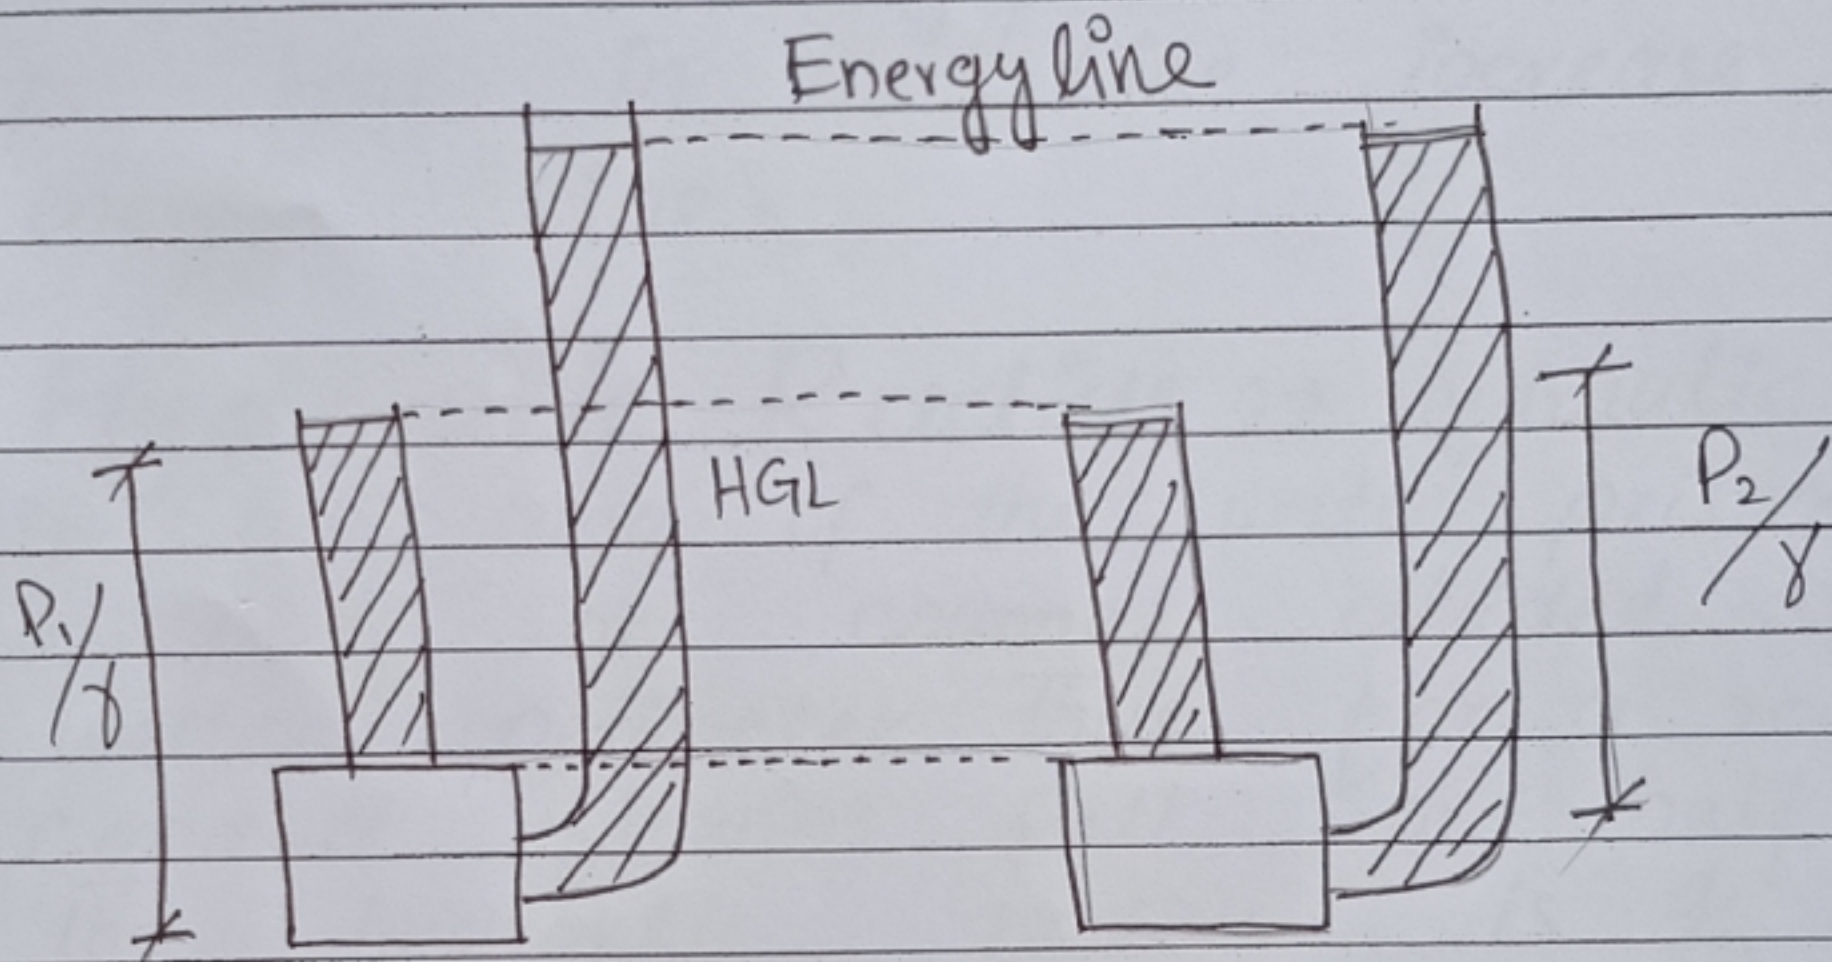 Energy line
HGL
P₁/γ
P₂/γ